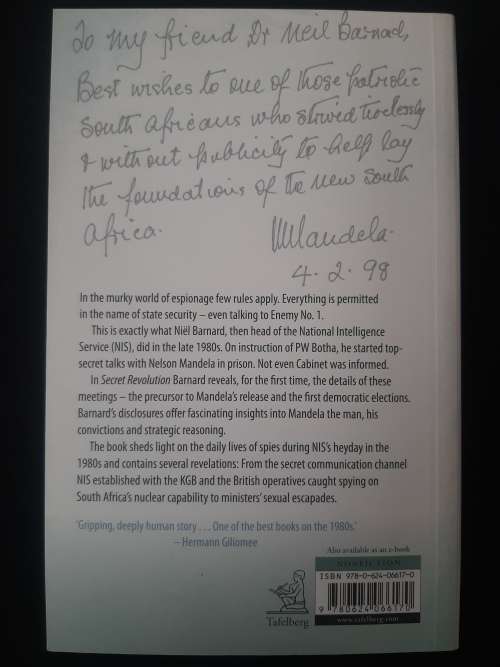 To my friend Dr Neil Barnad,
Best wishes to one of those patriotic
South Africans who strived tirelessly
& without publicity to help lay
the foundations of the new South
Africa.
NMandela.
4.2.98
In the murky world of espionage few rules apply. Everything is permitted
in the name of state security – even talking to Enemy No. 1.
This is exactly what Niël Barnard, then head of the National Intelligence
Service (NIS), did in the late 1980s. On instruction of PW Botha, he started top-
secret talks with Nelson Mandela in prison. Not even Cabinet was informed.
In Secret Revolution Barnard reveals, for the first time, the details of these
meetings – the precursor to Mandela's release and the first democratic elections.
Barnard's disclosures offer fascinating insights into Mandela the man, his
convictions and strategic reasoning.
The book sheds light on the daily lives of spies during NIS's heyday in the
1980s and contains several revelations: From the secret communication channel
NIS established with the KGB and the British operatives caught spying on
South Africa's nuclear capability to ministers' sexual escapades.
'Gripping, deeply human story . . . . One of the best books on the 1980s.'
– Hermann Giliomee
Also available as an e-book
NONFICTION
ISBN 978-0-624-06617-0
9 780624 066170
www.tafelberg.com
Tafelberg